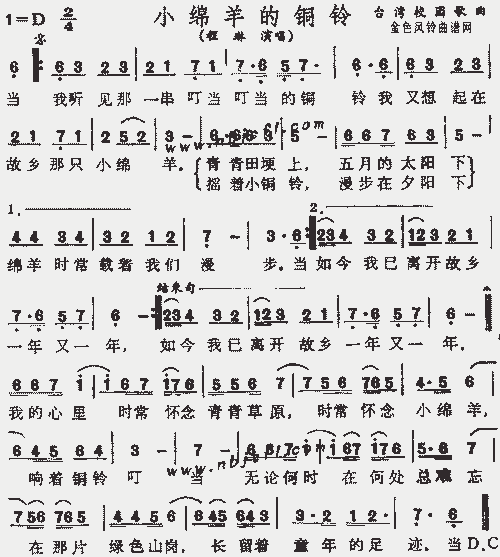 小绵羊的铜铃
1=D 2/4
台湾校园歌曲
(程琳演唱)
金色风铃曲谱网
6 63 23 21 71 7·6 57 6·6 63 23
当 我听 见那 一串 叮当 叮当 的铜 铃我 又想 起在
21 71 252 3 - 6·663 5 - 667 63 5 -
故乡 那只 小绵 羊。 青青田埂 上, 五月的 太阳 下
摇着小铜 铃, 漫步在 夕阳 下
1. 2.
44 34 32 12 7 - 3·6 234 32 123 21
绵羊 时常 载着 我们 漫 步。当 如今 我已 离开 故乡
结束句
7·6 57 6 - 234 32 123 21 7·6 57 6 -
一年 又一 年, 如今 我已 离开 故乡 一年 又一 年。
667 i i67 i76 556 7 756 765 4·5 6
我的心 里 时常 怀念 青青草 原, 时常 怀念 小绵 羊,
645 64 3 - 7 - 667 i i67 i76 5·6 7
响着 铜铃 叮 当 无论何 时 在何 处 总难 忘
756 765 445 6 645 643 3·2 12· 7·6
在那 片 绿色山 岗, 长 留着 童年 的足 迹。当D.C